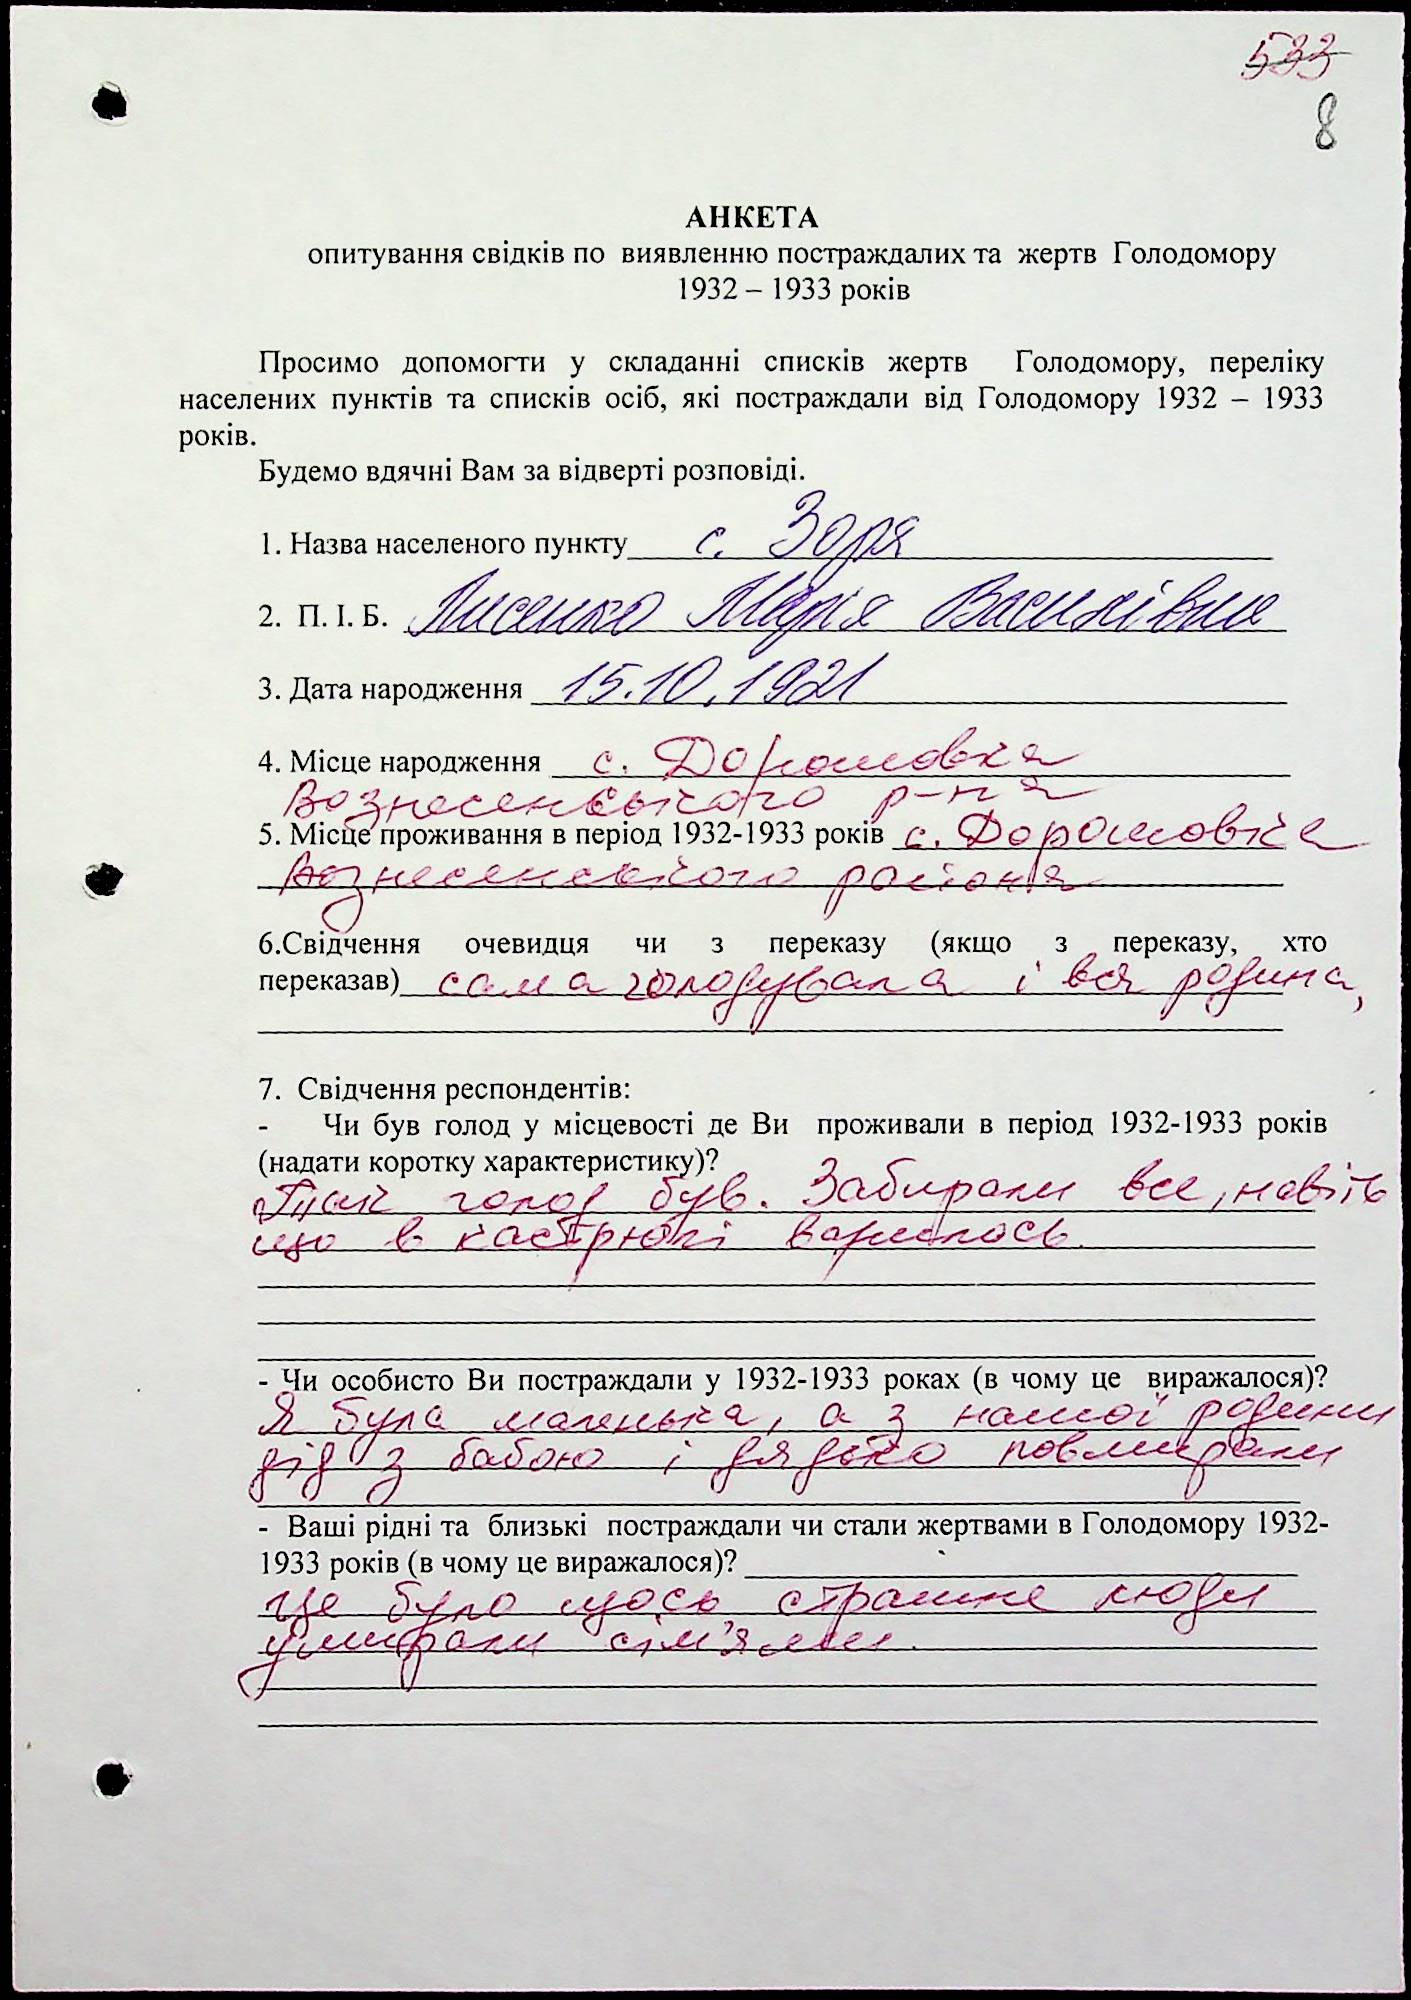 533
8
АНКЕТА
опитування свідків по виявленню постраждалих та жертв Голодомору
1932 – 1933 років
Просимо допомогти у складанні списків жертв Голодомору, переліку
населених пунктів та списків осіб, які постраждали від Голодомору 1932 – 1933
років.
Будемо вдячні Вам за відверті розповіді.
1. Назва населеного пункту с. Зоря
2. П. І. Б. Лисенко Марія Василівна
3. Дата народження 15.10.1921
4. Місце народження с. Дорошовка
Вознесенського р-на
5. Місце проживання в період 1932-1933 років с. Дорошовка
Вознесенського района
6.Свідчення очевидця чи з переказу (якщо з переказу, хто
переказав) сама голодувала і вся родина,
7. Свідчення респондентів:
- Чи був голод у місцевості де Ви проживали в період 1932-1933 років
(надати коротку характеристику)?
Так голод був. Забирали все, навіть
що в кастрюлі варилось.
- Чи особисто Ви постраждали у 1932-1933 роках (в чому це виражалося)?
Я була маленька, а з нашої родини
дід з бабою і дядько повмирали
- Ваші рідні та близькі постраждали чи стали жертвами в Голодомору 1932-
1933 років (в чому це виражалося)?
Це було щось страшне люди
умирали сім'ями.